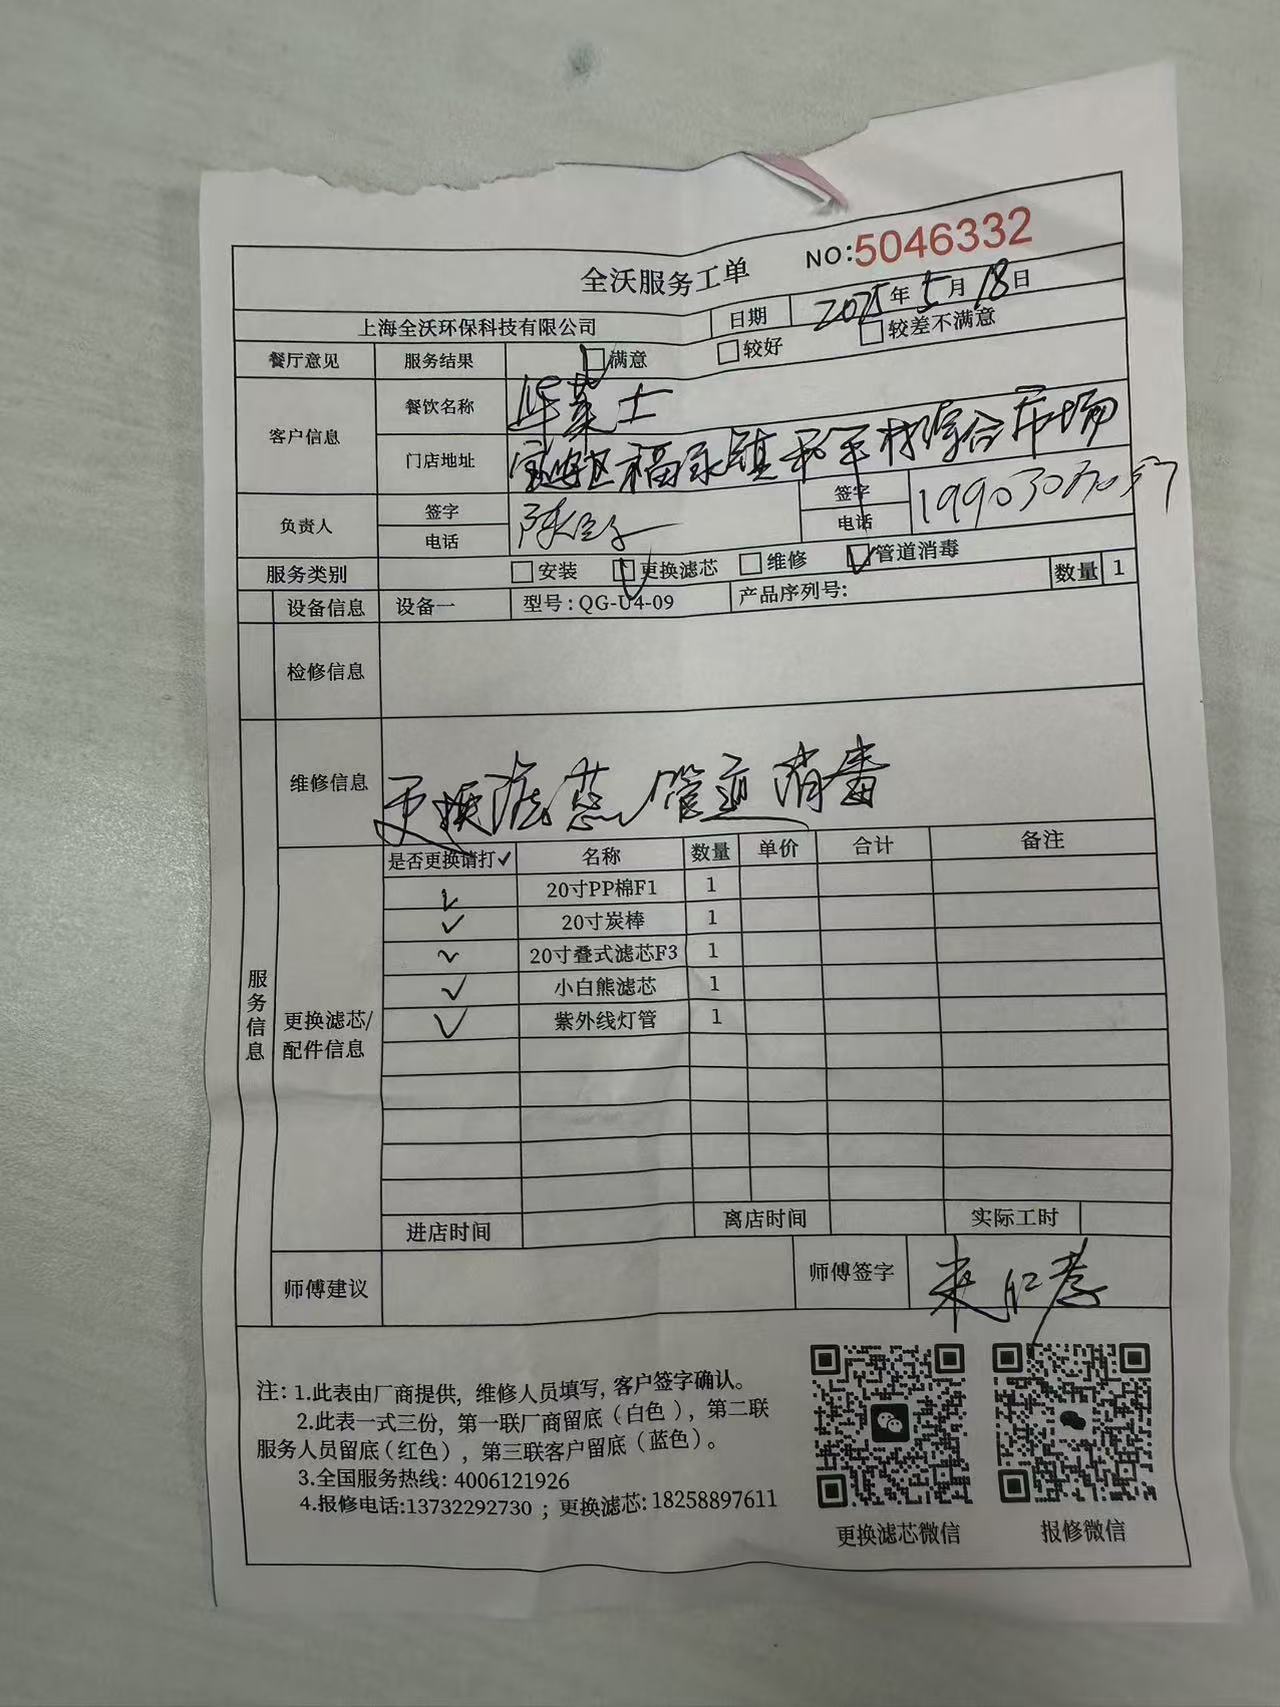 NO:5046332
全沃服务工单
上海全沃环保科技有限公司 日期 2025年5月18日
餐厅意见 服务结果 满意 较好 较差不满意
客户信息 餐饮名称 华莱士
门店地址 宝安区福永镇和平村综合市场
负责人 签字 签字
电话 电话
服务类别 安装 更换滤芯 维修 管道消毒 数量 1
设备信息 设备一 型号:QG-U4-09 产品序列号:
检修信息
维修信息 更换滤芯 管道消毒
是否更换请打✓ 名称 数量 单价 合计 备注
✓ 20寸PP棉F1 1
✓ 20寸炭棒 1
✓ 20寸叠式滤芯F3 1
✓ 小白熊滤芯 1
✓ 紫外线灯管 1
服务信息
更换滤芯/
配件信息
进店时间 离店时间 实际工时
师傅建议 师傅签字
注：1.此表由厂商提供，维修人员填写，客户签字确认。
2.此表一式三份，第一联厂商留底（白色），第二联
服务人员留底（红色），第三联客户留底（蓝色）。
3.全国服务热线：4006121926
4.报修电话:13732292730；更换滤芯:18258897611
更换滤芯微信 报修微信